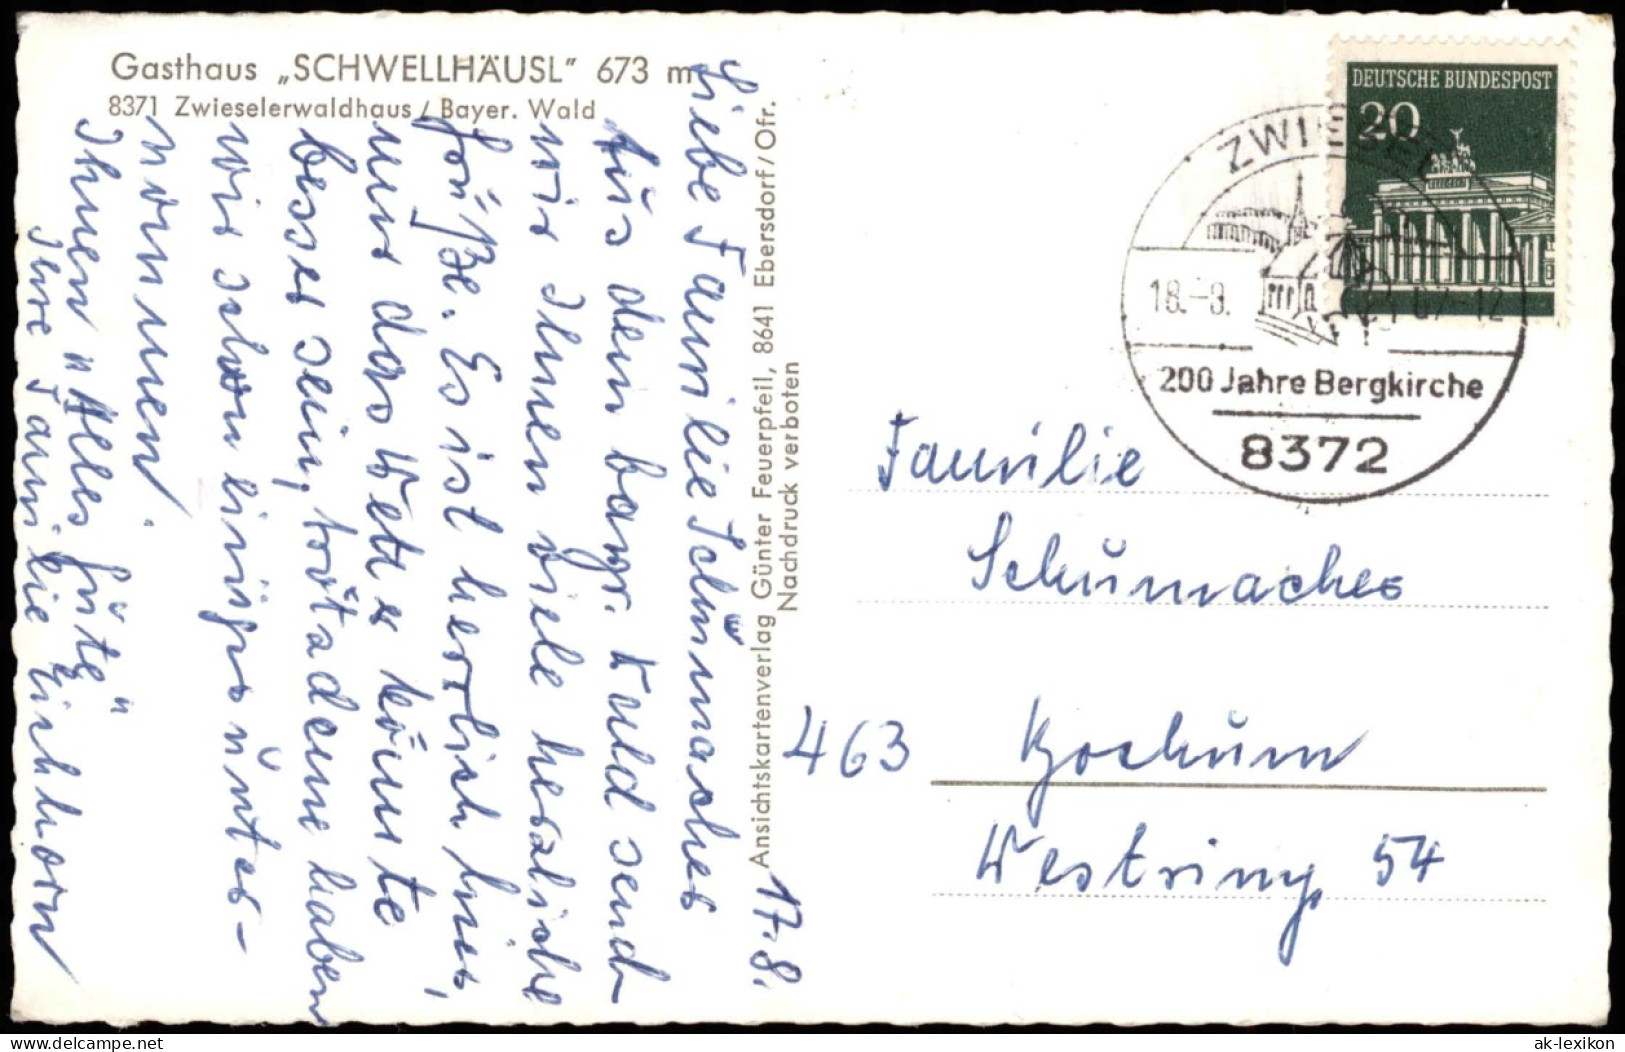 Gasthaus „SCHWELLHÄUSL” 673 m
8371 Zwieselerwaldhaus / Bayer. Wald
17.8.
Liebe Familie Schumacher
Aus dem bayr. Wald send
wir Ihnen viele herzliche
Grüße. Es ist herrlich hier,
nur das Wetter könnte
besser sein, trotzdem haben
wir schon einiges unter-
nommen.
Ihnen "Alles Gute"
Ihre Familie Eichhorn
Ansichtskartenverlag Günter Feuerpfeil, 8641 Ebersdorf/Ofr.
Nachdruck verboten
DEUTSCHE BUNDESPOST
20
ZWIESEL
18.-8.
-12
200 Jahre Bergkirche
8372
Familie
Schumacher
463 Bochum
Westring 54
delcampe.net
ak-lexikon